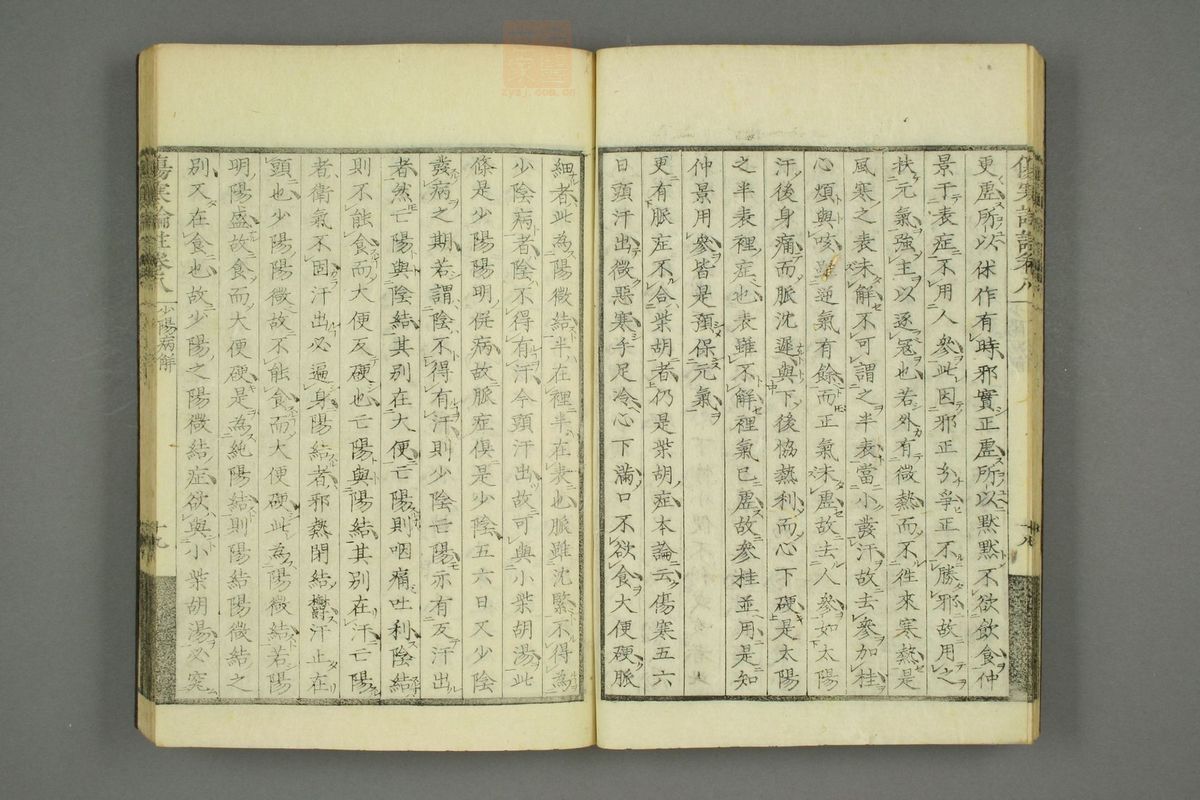 更虛所以休作有時邪實正虛所以默默不欲飲食仲
景于表症不用人參此因邪正分爭正不勝邪故用之
扶元氣強主以逐寇也若外有微熱而不徃來寒熱是
風寒之表未解不可謂之半表當小發汗故去參加桂
心煩與咳雖逆氣有餘而正氣未虛故去人參如太陽
汗後身痛而脈沈遲與下後恊熱利而心下硬是太陽
之半表裡症也表雖不解裡氣已虛故參桂並用是知
仲景用參皆是預保元氣
更有脈症不合柴胡者仍是柴胡症本論云傷寒五六
日頭汗出微惡寒手足冷心下滿口不欲食大便硬脈
傷寒論註卷八
十八
傷寒論註卷八
少陽病解
十九
細者此為陽微結半在裡半在表也脈雖沈緊不得為
少陰病者陰不得有汗今頭汗出故可與小柴胡湯此
條是少陽陽明併病故脈症俱是少陰五六日又少陰
發病之期若謂陰不得有汗則少陰亡陽亦有反汗出
者然亡陽與陰結其別在大便亡陽則咽痛吐利陰結
則不能食而大便反硬也亡陽與陽結其別在汗亡陽
者衛氣不固汗出必遍身陽結者邪熱閉結汗止在
頭也少陽陽微故不能食而大便硬此為陽微結若陽
明陽盛故食而大便硬是為純陽結則陽結陽微結之
別又在食也故少陽之陽微結症欲與小柴胡湯必究
zysj.com.cn